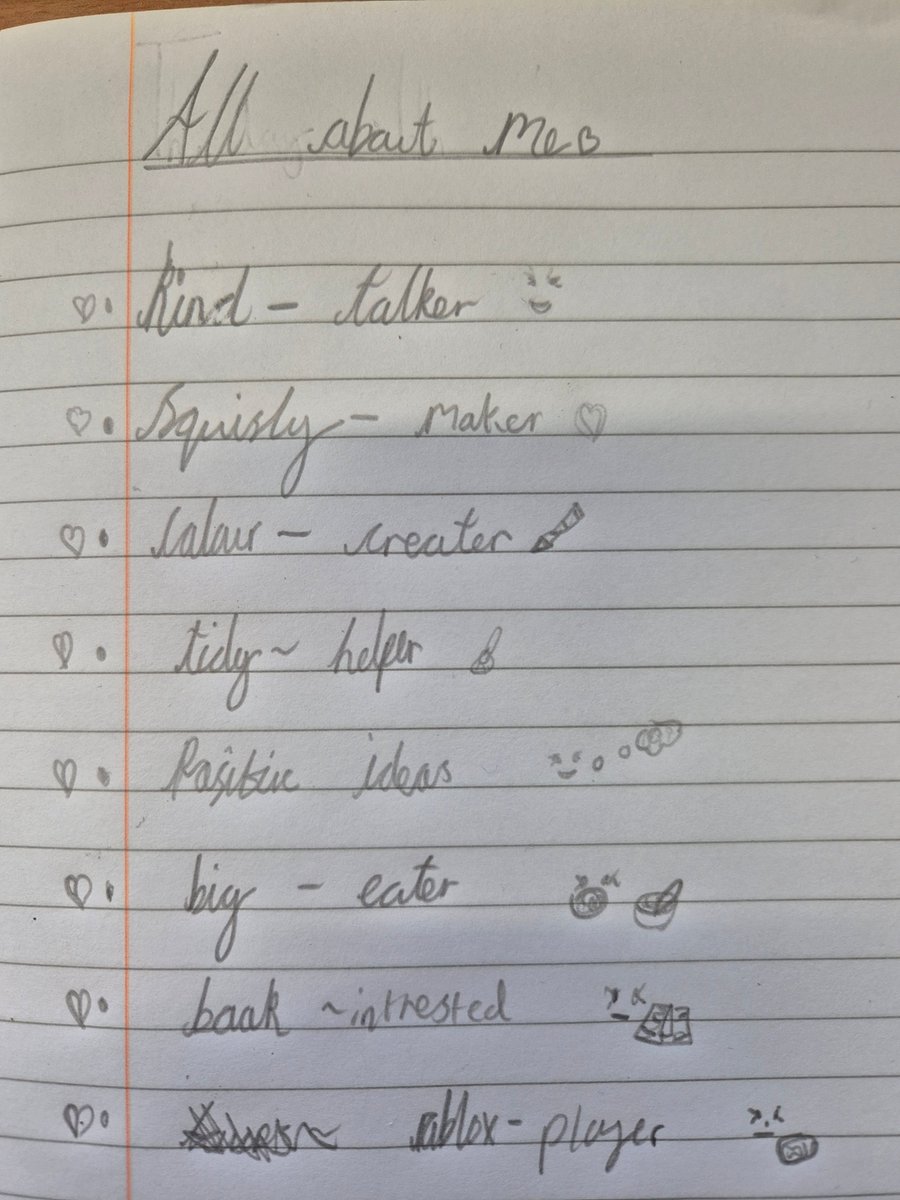 All about me
kind - talker
Squishy - maker
Colour - creater
tidy ~ helper
Positive ideas
big - eater
book ~ intrested
roblox - player